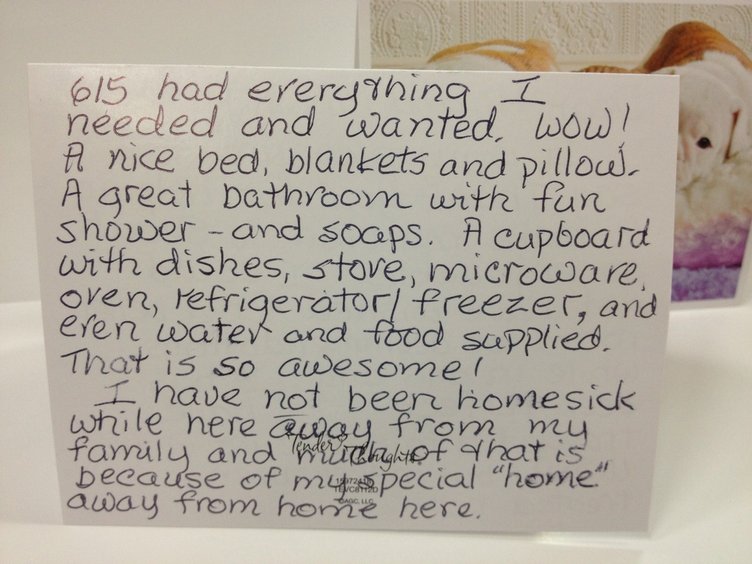 615 had everything I
needed and wanted. Wow!
A nice bed, blankets and pillow.
A great bathroom with fun
shower - and soaps. A cupboard
with dishes, stove, microwave,
oven, refrigerator/freezer, and
even water and food supplied.
That is so awesome!
I have not been homesick
while here away from my
Tender Thoughts
family and much of that is
because of my special "home"
away from home here.
AGC, LLC